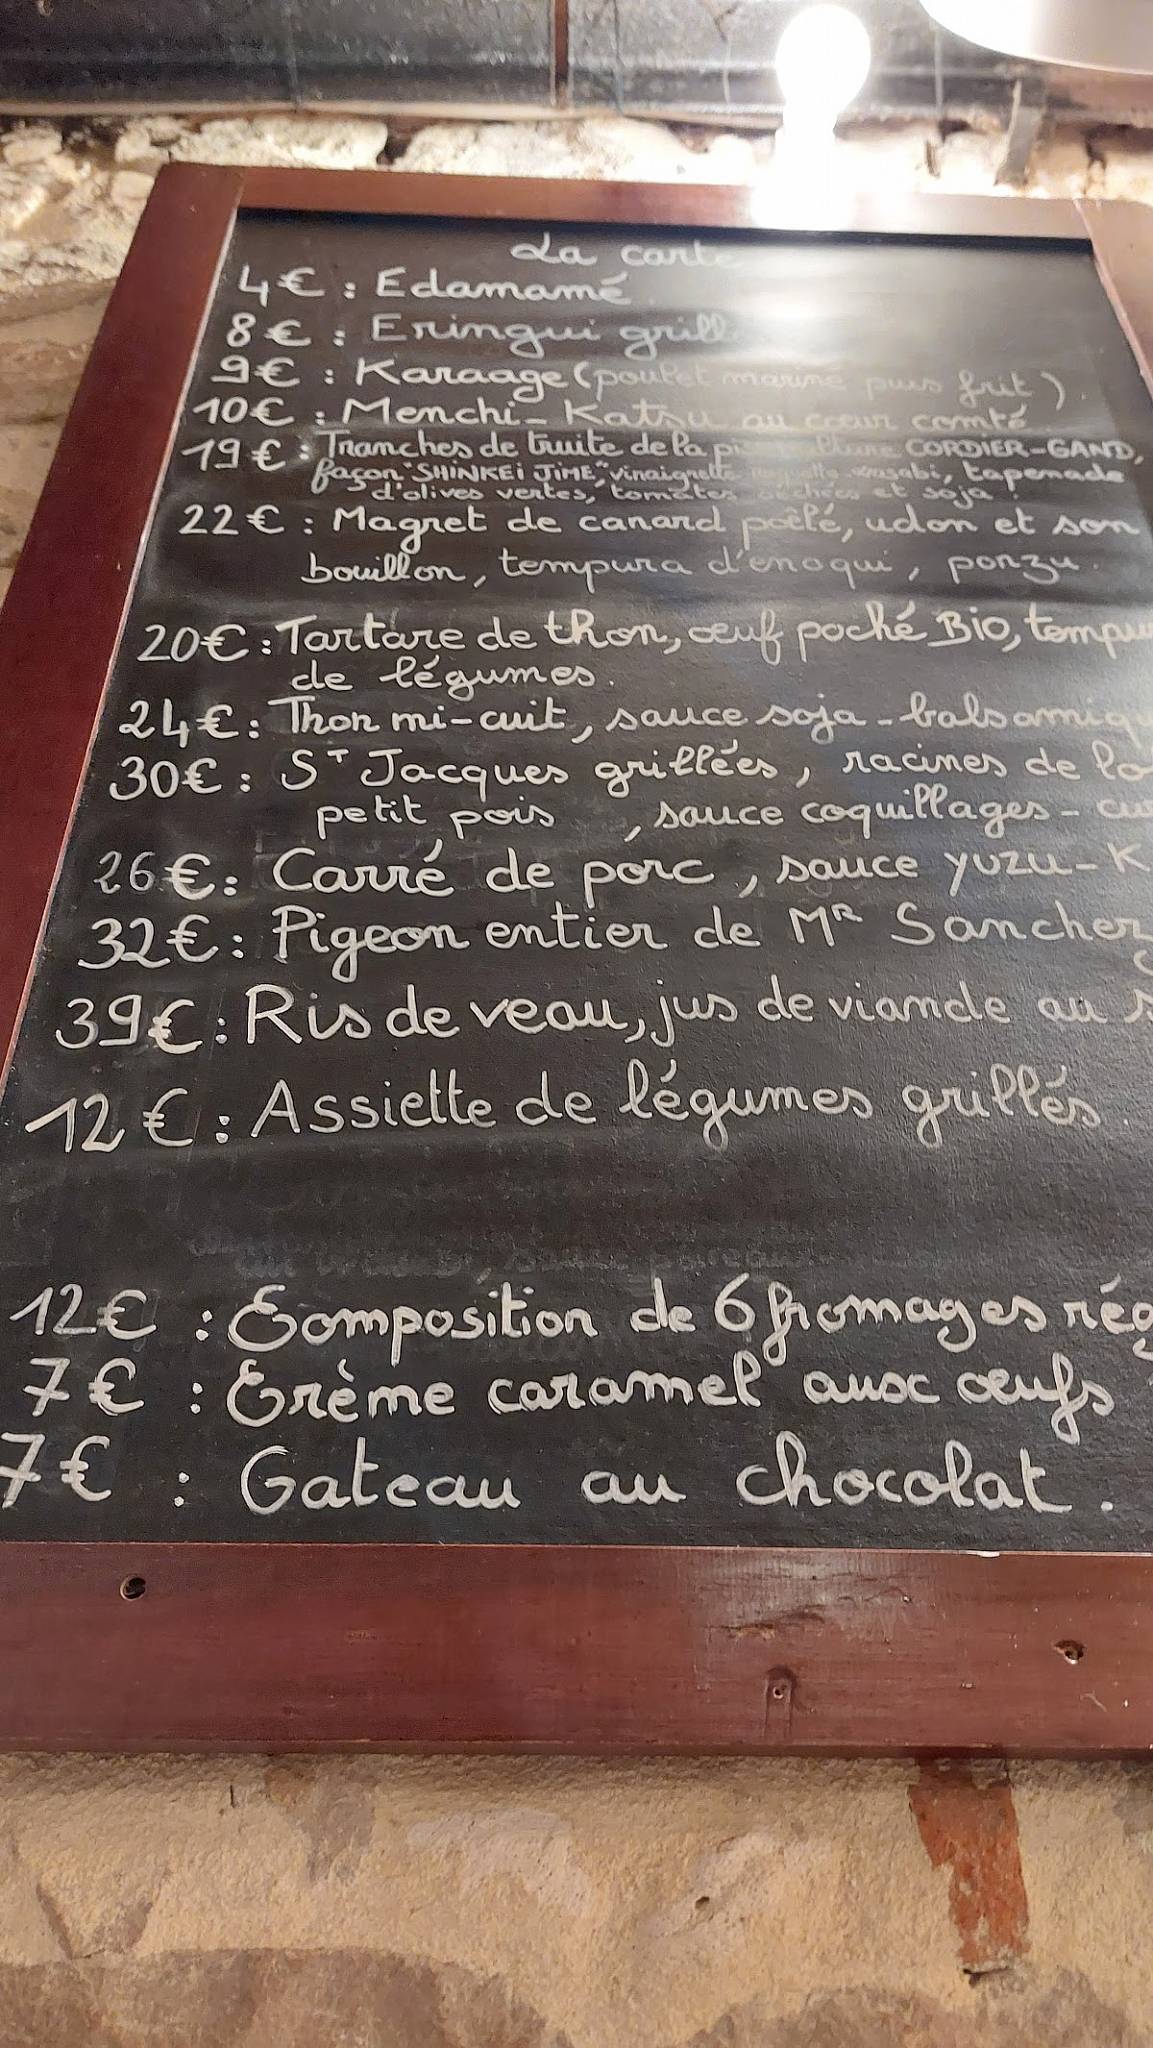 La carte
4€ : Edamamé
8€ : Eringui
9€ : Karaage (poulet mariné puis frit).
10€ : Menchi-Katsu au cœur comté
19€ : Tranches de truite de la CORDIER-GAND,
façon "SHINKEI JIME", vinaigrette wasabi, tapenade
d'olives vertes, tomates séchées et soja.
22€ : Magret de canard poêlé, udon et son
bouillon, tempura d'énoqui, ponzu.
20€ : Tartare de thon, œuf poché Bio,
de légumes.
24€ : Thon mi-cuit, sauce soja-
30€ : St Jacques grillées, racines de
petit pois , sauce coquillages-
26€ : Carré de porc, sauce yuzu-K
32€ : Pigeon entier de MR Sanchez
39€ : Ris de veau, jus de viande au
12€ : Assiette de légumes grillés
12€ : Composition de 6 fromages
7€ : Crème caramel aux œufs
7€ : Gateau au chocolat.